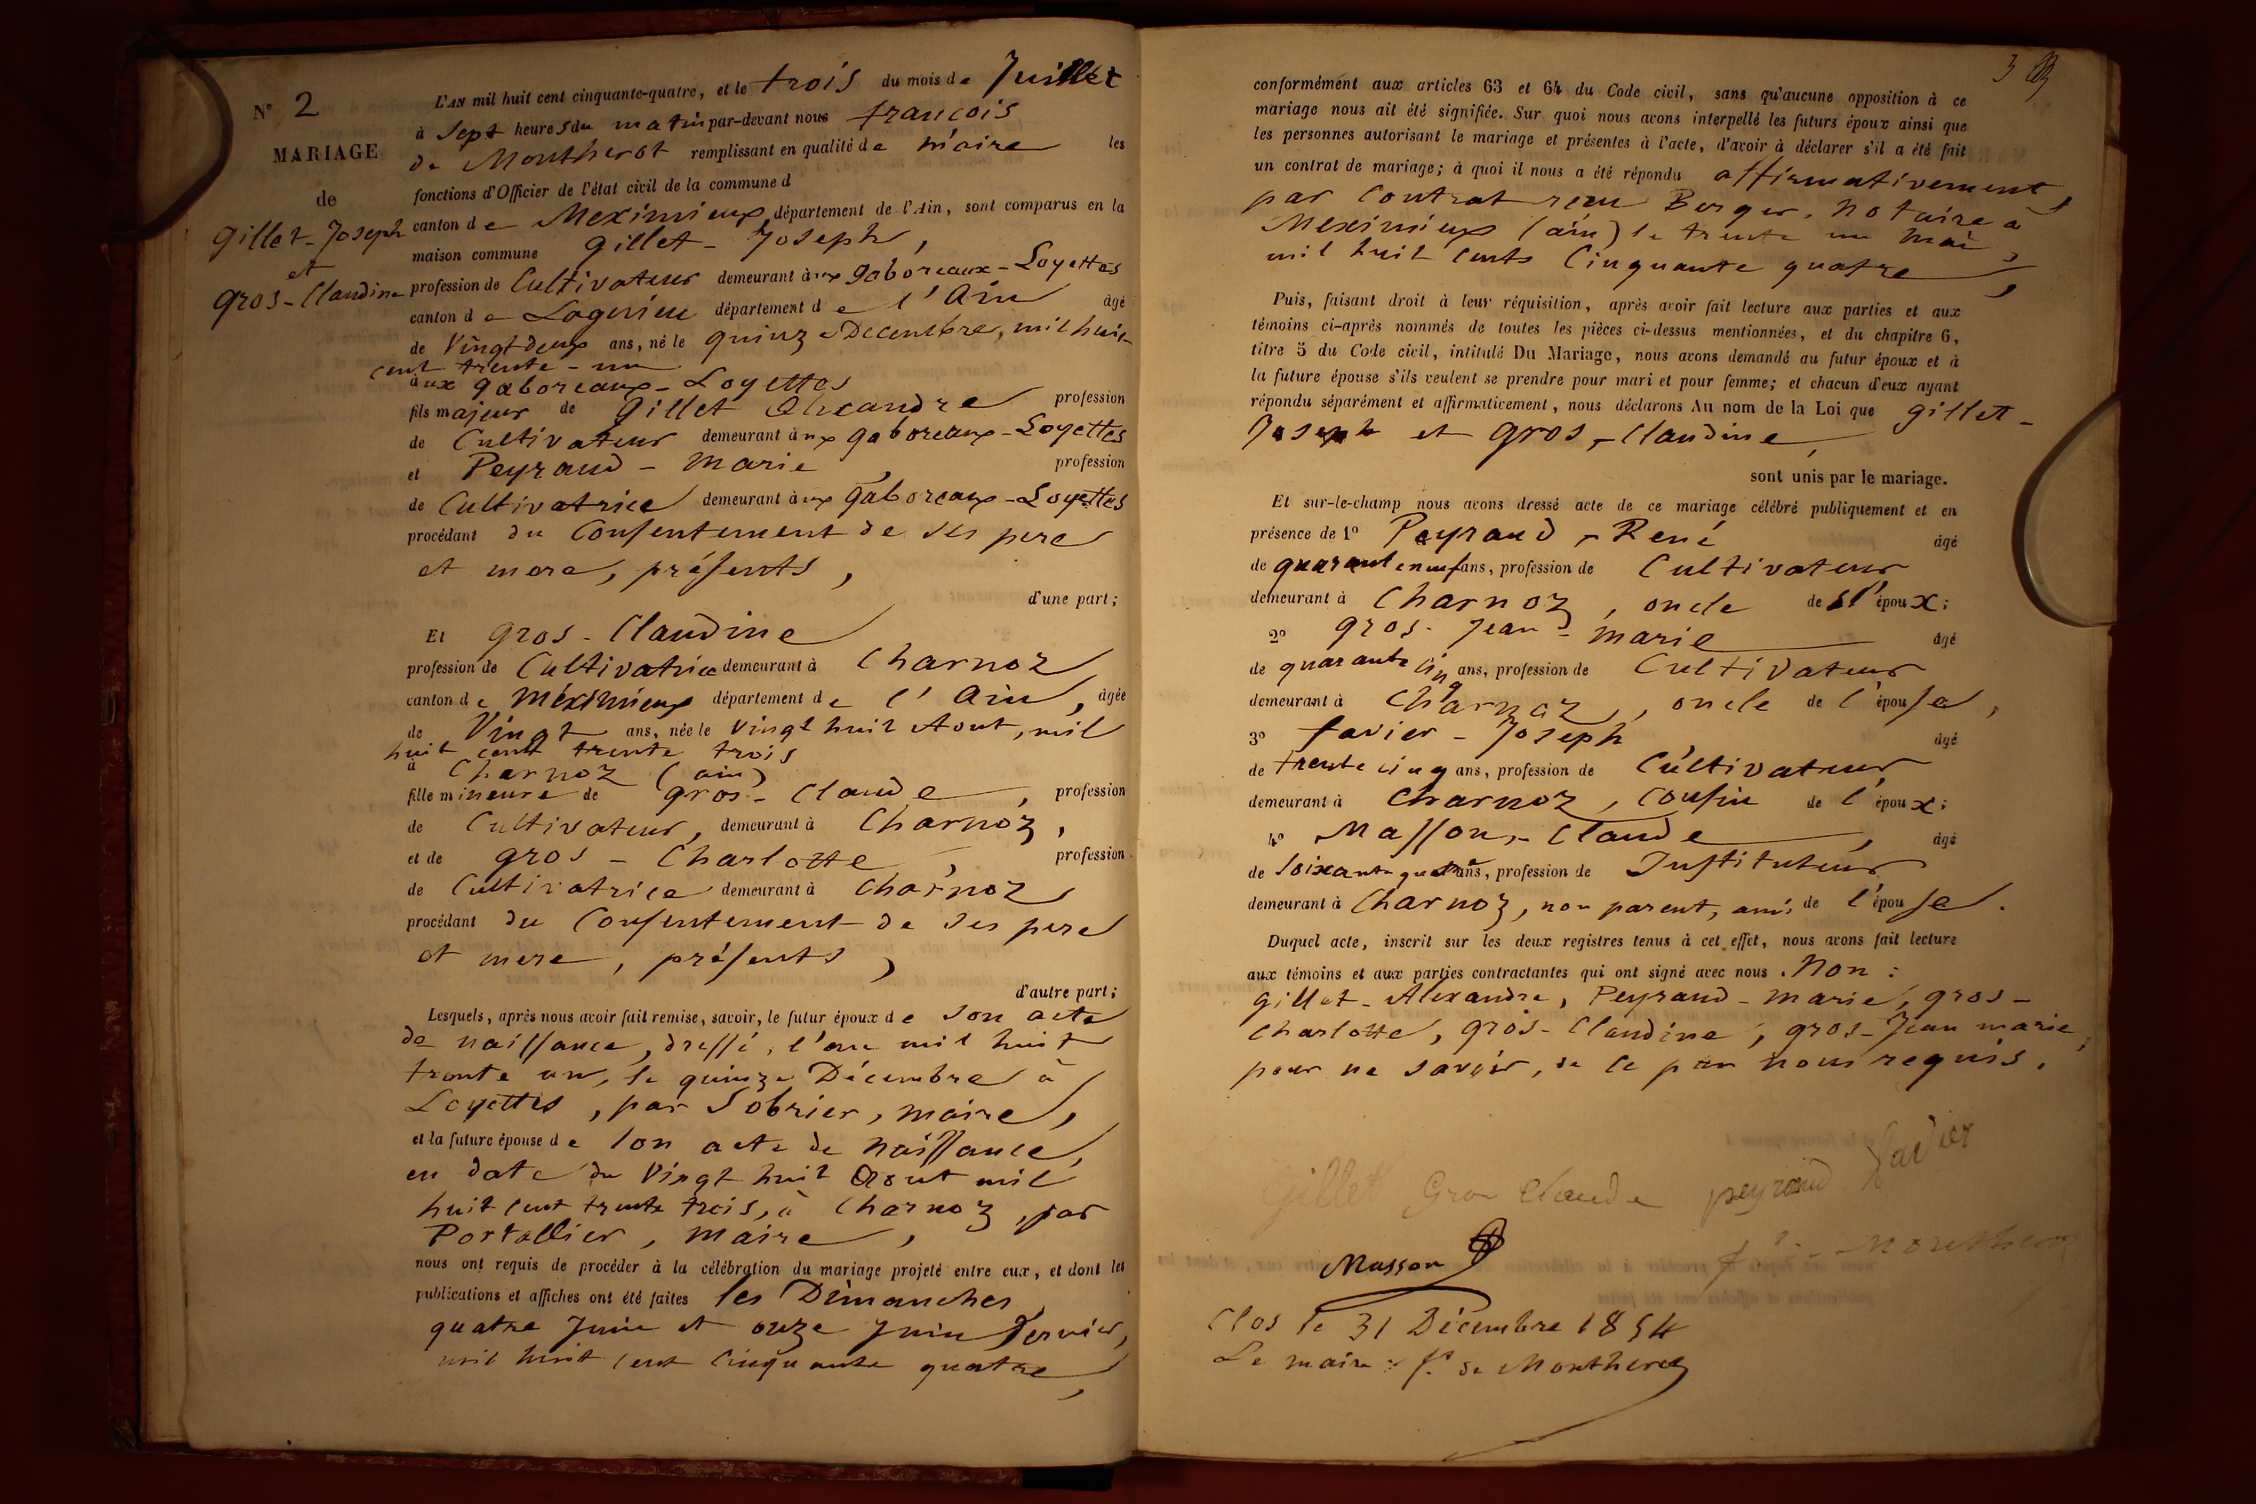 N° 2
MARIAGE
de
Gillet - Joseph
et
Gros - Claudine
L'AN mil huit cent cinquante-quatre, et le trois du mois de Juillet
à Sept heures du matin par-devant nous françois
de Montherot remplissant en qualité de maire les
fonctions d'Officier de l'état civil de la commune d
canton de Meximieux, département de l'Ain, sont comparus en la
maison commune Gillet - Joseph,
profession de Cultivateur demeurant aux gaboreaux - Loyettes
canton de Lagnieu département de l'Ain âgé
de Vingt deux ans, né le quinze Decembre, mil huit
cent trente - un
aux gaboreaux - Loyettes
fils majeur de Gillet Alexandre profession
de Cultivateur demeurant aux gaboreaux - Loyettes
et Peyraud - Marie, profession
de Cultivatrice demeurant aux gaboreaux - Loyettes
procédant du Consentement de ses pere
et mere, présents,
d'une part;
Et Gros - Claudine
profession de Cultivatrice demeurant à Charnoz
canton de Méximieux département de l'Ain, âgée
de Vingt ans, née le Vingt huit Aout, mil
huit cent trente trois
à Charnoz (ain)
fille mineure de Gros - Claude, profession
de Cultivateur, demeurant à Charnoz,
et de Gros - Charlotte, profession
de Cultivatrice demeurant à Charnoz
procédant du Consentement de ses pere
et mere, présents,
d'autre part;
Lesquels, après nous avoir fait remise, savoir, le futur époux de son acte
de naissance, dressé, l'an mil huit
trente un, le quinze Décembre à
Loyettes, par Sobrier, maire,
et la future épouse de son acte de naissance,
en date du Vingt huit Aout mil
huit cent trente trois, à Charnoz, par
Portallier, maire,
nous ont requis de procéder à la célébration du mariage projeté entre eux, et dont les
publications et affiches ont été faites les Dimanches
quatre Juin et onze Juin dernier,
mil huit cent cinquante quatre,
3
conformément aux articles 63 et 64 du Code civil, sans qu'aucune opposition à ce
mariage nous ait été signifiée. Sur quoi nous avons interpellé les futurs époux ainsi que
les personnes autorisant le mariage et présentes à l'acte, d'avoir à déclarer s'il a été fait
un contrat de mariage; à quoi il nous a été répondu affirmativement,
par Contrat reçu Berger, notaire à
Meximieux (ain) le trente un Mai,
mil huit cents Cinquante quatre,
Puis, faisant droit à leur réquisition, après avoir fait lecture aux parties et aux
témoins ci-après nommés de toutes les pièces ci-dessus mentionnées, et du chapitre 6,
titre 5 du Code civil, intitulé Du Mariage, nous avons demandé au futur époux et à
la future épouse s'ils veulent se prendre pour mari et pour femme; et chacun d'eux ayant
répondu séparément et affirmativement, nous déclarons Au nom de la Loi que Gillet -
Joseph et Gros - Claudine,
sont unis par le mariage.
Et sur-le-champ nous avons dressé acte de ce mariage célébré publiquement et en
présence de 1° Peyraud - René âgé
de quarante neuf ans, profession de Cultivateur
demeurant à Charnoz, oncle de l'époux;
2° Gros - Jean - marie âgé
de quarante cinq ans, profession de Cultivateur
demeurant à Charnoz, oncle de l'épouse,
3° favier - Joseph âgé
de trente cinq ans, profession de Cultivateur
demeurant à Charnoz, Cousin de l'époux;
4° Masson - Claude, âgé
de Soixante quatre ans, profession de Instituteur
demeurant à Charnoz, non parent, ami de l'épouse.
Duquel acte, inscrit sur les deux registres tenus à cet effet, nous avons fait lecture
aux témoins et aux parties contractantes qui ont signé avec nous. Non:
Gillet - Alexandre, Peyraud - marie, gros -
Charlotte, gros - Claudine, gros - Jean marie,
pour ne savoir, de ce par nous requis.
Gillet Gros Claude peyraud favier
Masson
f. de Montherot
Clos le 31 Décembre 1854
Le maire: f. de Montherot